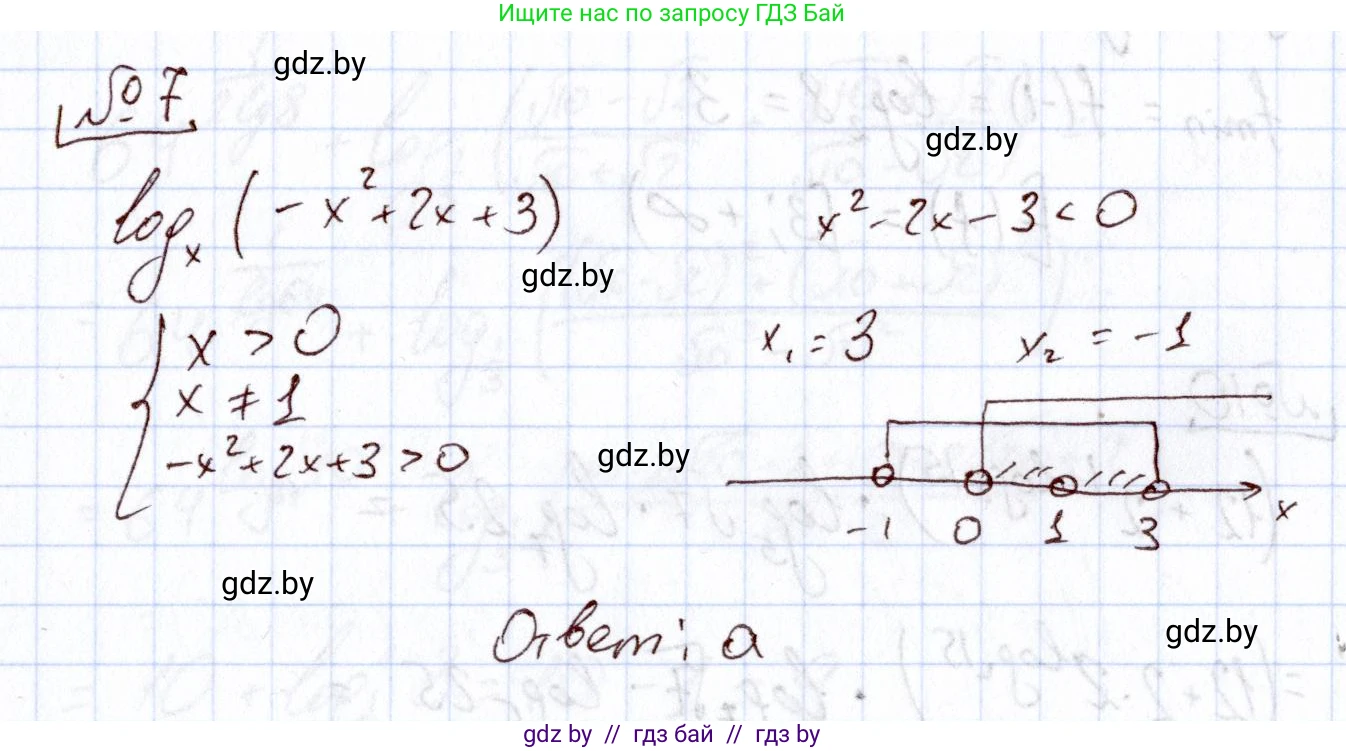 Ищите нас по запросу ГДЗ Бай
gdz.by
№ 7
gdz.by
log_x (-x² + 2x + 3)
x² - 2x - 3 < 0
gdz.by
x > 0
x₁ = 3
x₂ = -1
x ≠ 1
-x² + 2x + 3 > 0
gdz.by
-1 0 1 3 x
gdz.by
Ответ: а
gdz.by
gdz.by // гдз бай // гдз by